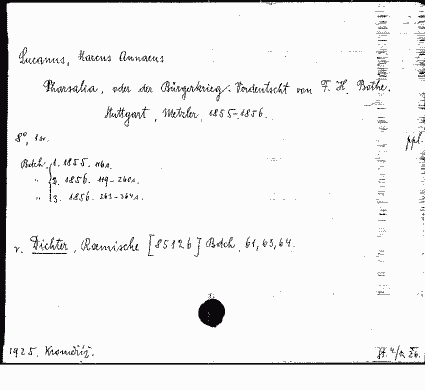 Lucanus, Marcus Annaeus
Pharsalia, oder der Bürgerkrieg. Verdeutscht von F. H. Bothe.
Stuttgart, Metzler, 1855-1856.
8°,
ppl.
Bdch. 1. 1855. 116s.
" 2. 1856. 119-260s.
" 3. 1856. 263-364s.
v. Dichter, Roemische [85126] Bdch. 61, 63, 64.
1925. Kroměříž.
26.